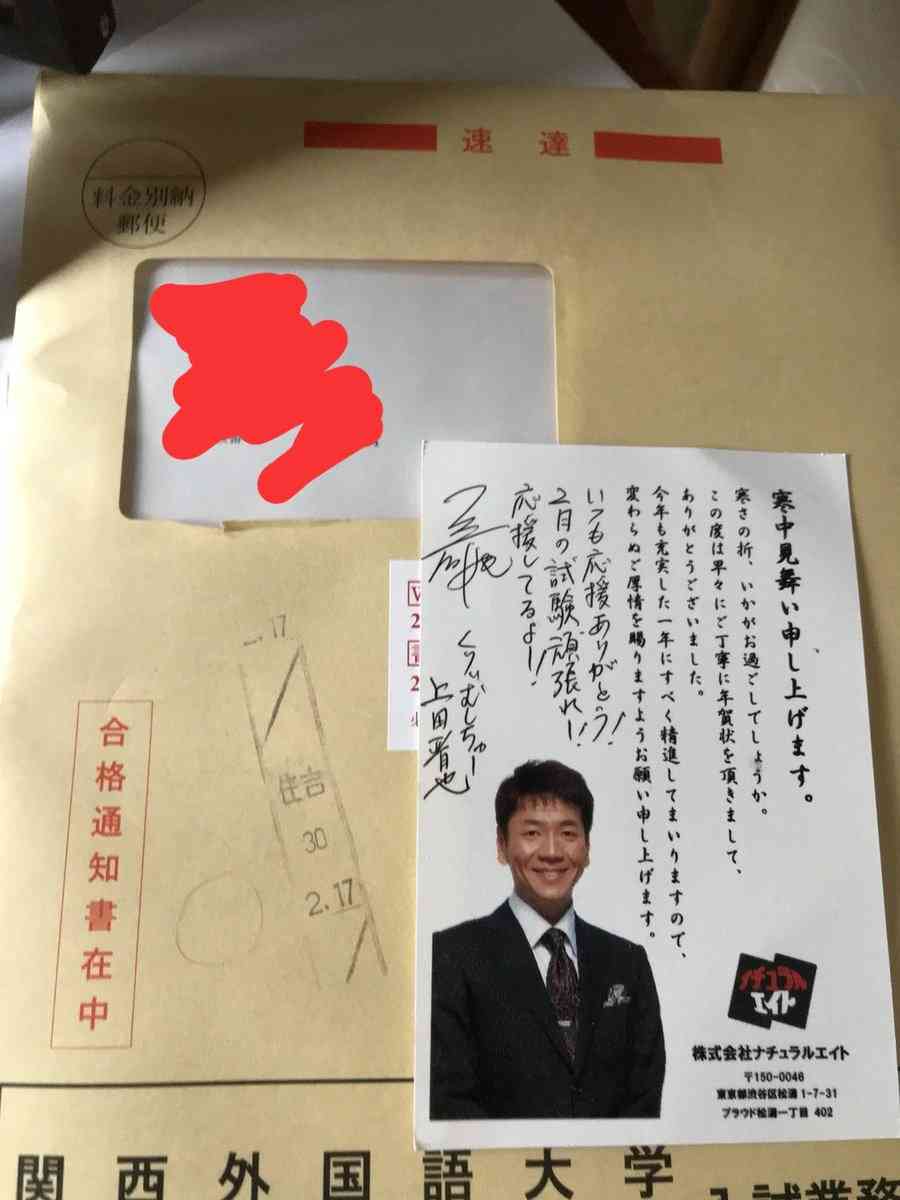 速達
料金別納
郵便
寒中見舞い申し上げます。
寒さの折、いかがお過ごしでしょうか。
この度は早々にご丁寧に年賀状を頂きまして、
ありがとうございました。
今年も充実した一年にすべく精進してまいりますので、
変わらぬご厚情を賜りますようお願い申し上げます。
いつも応援ありがとう!
2月の試験頑張れー!!
応援してるよー!
くりぃむしちゅー
上田晋也
ナチュラル
エイト
株式会社ナチュラルエイト
〒150-0046
東京都渋谷区松濤1-7-31
プラウド松濤一丁目 402
17
住吉
30
2.17
合格通知書在中
関西外国語大学
入試業務